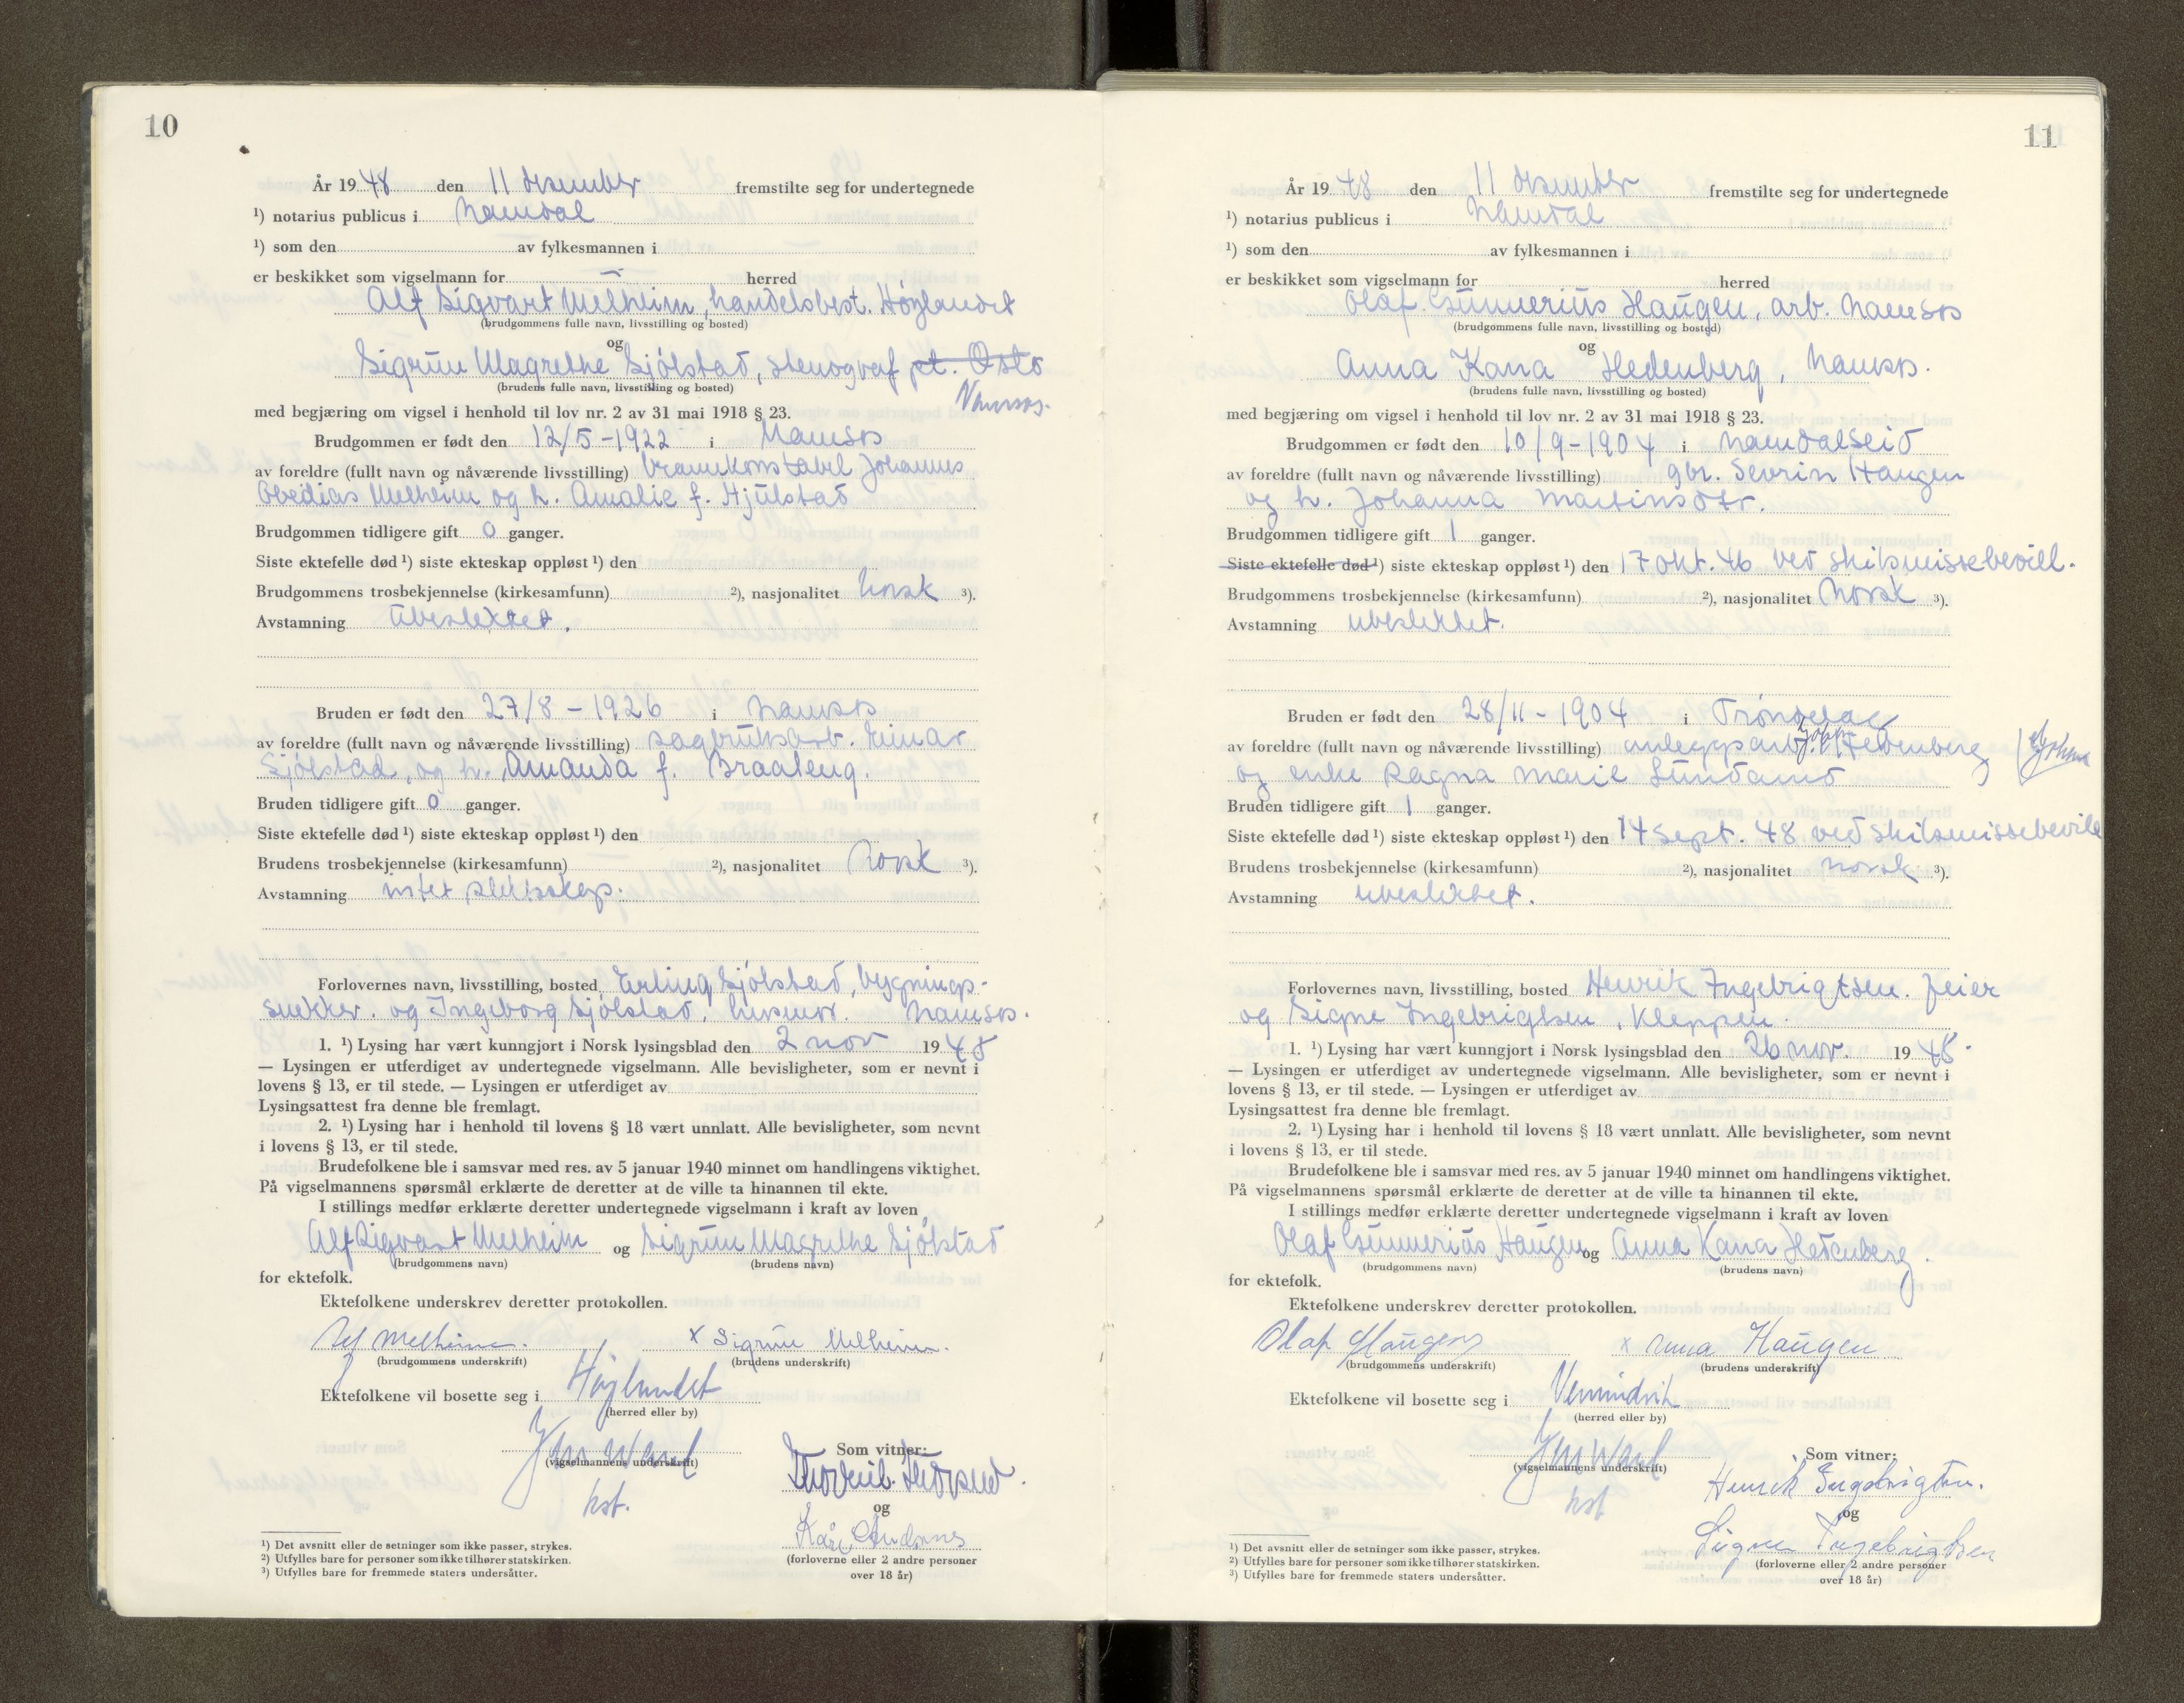 10
År 1948 den 11 desember fremstilte seg for undertegnede
¹) notarius publicus i Namdal
¹) som den av fylkesmannen i
er beskikket som vigselmann for — herred
Alf Sigvart Melheim, handelsbest. Høylandet
(brudgommens fulle navn, livsstilling og bosted)
og
Sigrun Magrethe Sjølstad, stenograf pt. Oslo
(brudens fulle navn, livsstilling og bosted)
Namsos.
med begjæring om vigsel i henhold til lov nr. 2 av 31 mai 1918 § 23.
Brudgommen er født den 12/5-1922 i Namsos
av foreldre (fullt navn og nåværende livsstilling) brannkonstabel Johannes
Obedias Melheim og h. Amalie f. Hjulstad
Brudgommen tidligere gift 0 ganger.
Siste ektefelle død ¹) siste ekteskap oppløst ¹) den
Brudgommens trosbekjennelse (kirkesamfunn) ²), nasjonalitet norsk ³).
Avstamning ubeslektet.
Bruden er født den 27/8-1926 i Namsos
av foreldre (fullt navn og nåværende livsstilling) sagbruksarb. Einar
Sjølstad, og h. Amanda f. Braaleng.
Bruden tidligere gift 0 ganger.
Siste ektefelle død ¹) siste ekteskap oppløst ¹) den
Brudens trosbekjennelse (kirkesamfunn) ²), nasjonalitet norsk ³).
Avstamning intet slektskap.
Forlovernes navn, livsstilling, bosted Erling Sjølstad, bygnings-
snekker. og Ingeborg Sjølstad, husmor. Namsos.
1. ¹) Lysing har vært kunngjort i Norsk lysingsblad den 2 nov 1948
— Lysingen er utferdiget av undertegnede vigselmann. Alle bevisligheter, som er nevnt i
lovens § 13, er til stede. — Lysingen er utferdiget av
Lysingsattest fra denne ble fremlagt.
2. ¹) Lysing har i henhold til lovens § 18 vært unnlatt. Alle bevisligheter, som nevnt
i lovens § 13, er til stede.
Brudefolkene ble i samsvar med res. av 5 januar 1940 minnet om handlingens viktighet.
På vigselmannens spørsmål erklærte de deretter at de ville ta hinannen til ekte.
I stillings medfør erklærte deretter undertegnede vigselmann i kraft av loven
Alf Sigvart Melheim og Sigrun Magrethe Sjølstad
(brudgommens navn) (brudens navn)
for ektefolk.
Ektefolkene underskrev deretter protokollen.
Alf Melheim. x Sigrun Melheim.
(brudgommens underskrift) (brudens underskrift)
Ektefolkene vil bosette seg i Høylandet
(herred eller by)
(vigselmannens underskrift)
kst.
Som vitner:
og
(forloverne eller 2 andre personer
over 18 år)
¹) Det avsnitt eller de setninger som ikke passer, strykes.
²) Utfylles bare for personer som ikke tilhører statskirken.
³) Utfylles bare for fremmede staters undersåtter.
11
År 1948 den 11 desember fremstilte seg for undertegnede
¹) notarius publicus i Namdal
¹) som den av fylkesmannen i
er beskikket som vigselmann for herred
Olaf Gunnerius Haugen, arb. Namsos
(brudgommens fulle navn, livsstilling og bosted)
og
Anna Kana Hedenberg, Namsos.
(brudens fulle navn, livsstilling og bosted)
med begjæring om vigsel i henhold til lov nr. 2 av 31 mai 1918 § 23.
Brudgommen er født den 10/9-1904 i Namdalseid
av foreldre (fullt navn og nåværende livsstilling) gbr. Sevrin Haugen
og h. Johanna Martinsdtr.
Brudgommen tidligere gift 1 ganger.
Siste ektefelle død ¹) siste ekteskap oppløst ¹) den 17 okt. 46 ved skilsmissebevill.
Brudgommens trosbekjennelse (kirkesamfunn) ²), nasjonalitet norsk ³).
Avstamning ubeslektet.
Bruden er født den 28/11-1904 i Trøndelag
av foreldre (fullt navn og nåværende livsstilling) anleggsarb. Hedenberg
og enke Ragna Marie Sundamo
Bruden tidligere gift 1 ganger.
Siste ektefelle død ¹) siste ekteskap oppløst ¹) den 14 sept. 48 ved skilsmissebevill
Brudens trosbekjennelse (kirkesamfunn) ²), nasjonalitet norsk ³).
Avstamning ubeslektet.
Forlovernes navn, livsstilling, bosted Henrik Ingebrigtsen. feier
og Signe Ingebrigtsen, Kleppen.
1. ¹) Lysing har vært kunngjort i Norsk lysingsblad den 26 nov. 1948.
— Lysingen er utferdiget av undertegnede vigselmann. Alle bevisligheter, som er nevnt i
lovens § 13, er til stede. — Lysingen er utferdiget av
Lysingsattest fra denne ble fremlagt.
2. ¹) Lysing har i henhold til lovens § 18 vært unnlatt. Alle bevisligheter, som nevnt
i lovens § 13, er til stede.
Brudefolkene ble i samsvar med res. av 5 januar 1940 minnet om handlingens viktighet.
På vigselmannens spørsmål erklærte de deretter at de ville ta hinannen til ekte.
I stillings medfør erklærte deretter undertegnede vigselmann i kraft av loven
Olaf Gunnerius Haugen og Anna Kana Hedenberg.
(brudgommens navn) (brudens navn)
for ektefolk.
Ektefolkene underskrev deretter protokollen.
Olaf Haugen x Anna Haugen
(brudgommens underskrift) (brudens underskrift)
Ektefolkene vil bosette seg i Vemundvik
(herred eller by)
(vigselmannens underskrift)
kst
Som vitner:
Henrik Ingebrigtsen.
og
Signe Ingebrigtsen
(forloverne eller 2 andre personer
over 18 år)
¹) Det avsnitt eller de setninger som ikke passer, strykes.
²) Utfylles bare for personer som ikke tilhører statskirken.
³) Utfylles bare for fremmede staters undersåtter.